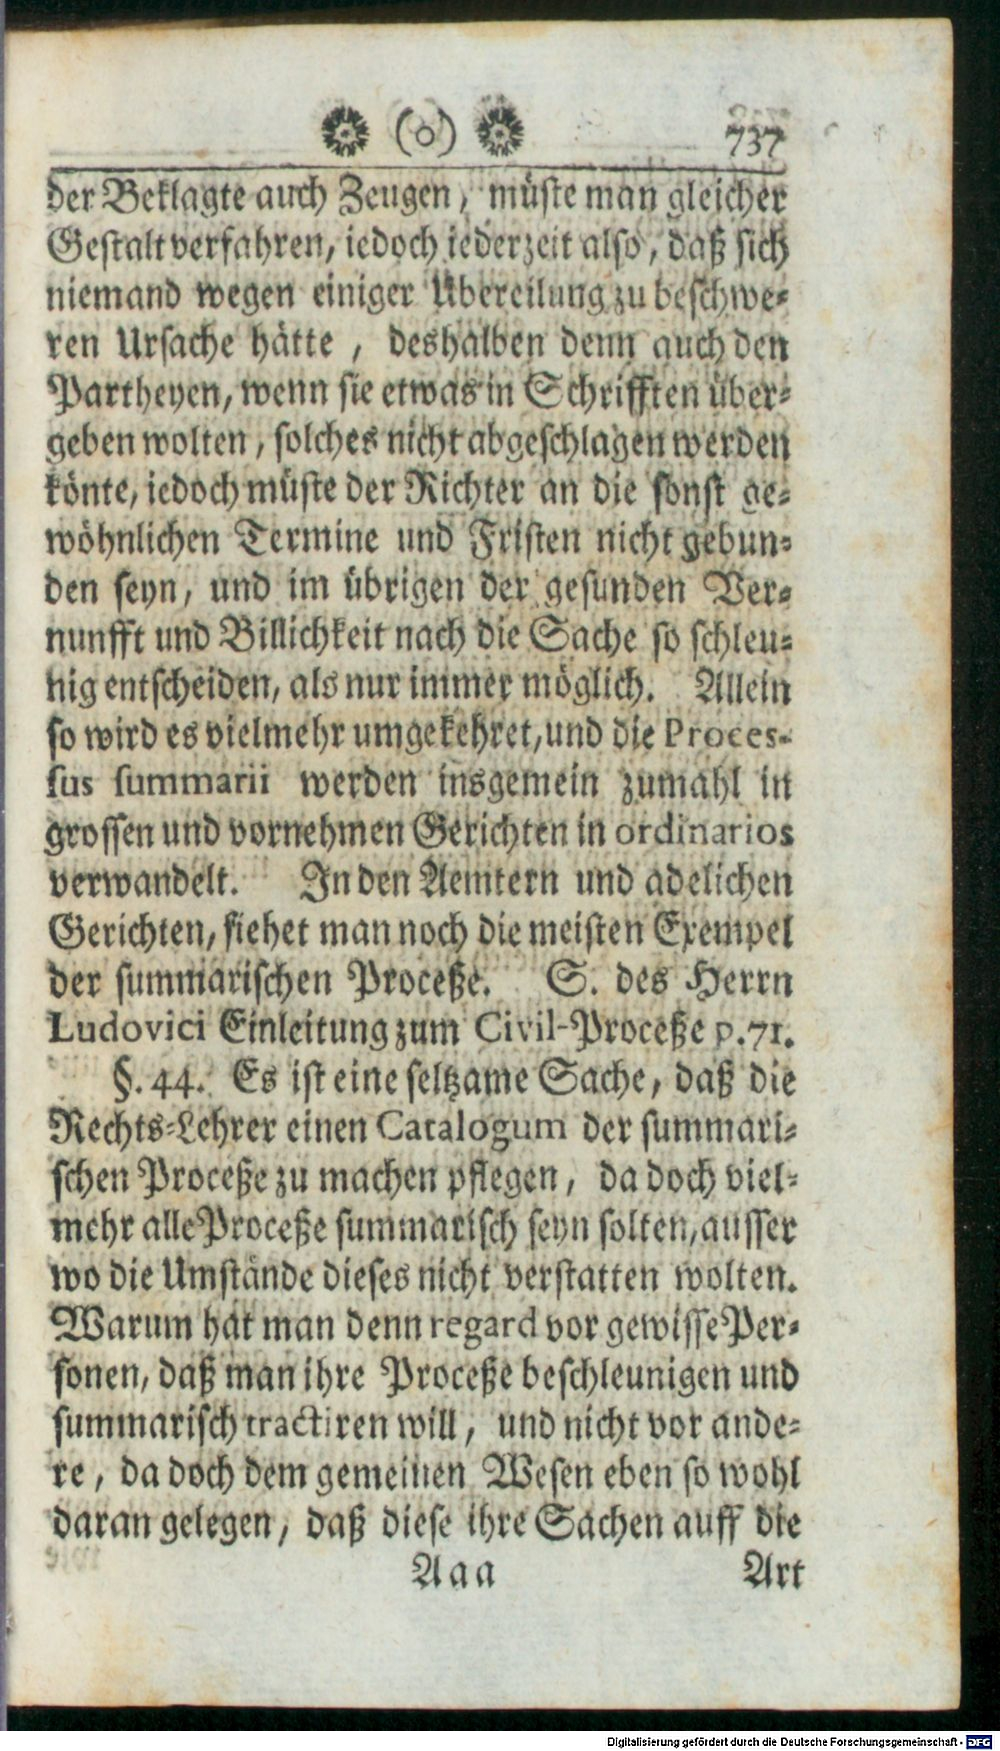 (o) 737
der Beklagte auch Zeugen, müste man gleicher
Gestalt verfahren, iedoch iederzeit also, daß sich
niemand wegen einiger Ubereilung zu beschwe-
ren Ursache hätte, deshalben denn auch den
Partheyen, wenn sie etwas in Schrifften über-
geben wolten, solches nicht abgeschlagen werden
könte, iedoch müste der Richter an die sonst ge-
wöhnlichen Termine und Fristen nicht gebun-
den seyn, und im übrigen der gesunden Ver-
nunfft und Billichkeit nach die Sache so schleu-
nig entscheiden, als nur immer möglich. Allein
so wird es vielmehr umgekehret, und die Proces-
sus summarii werden insgemein zumahl in
grossen und vornehmen Gerichten in ordinarios
verwandelt. In den Aemtern und adelichen
Gerichten, siehet man noch die meisten Exempel
der summarischen Proceße. S. des Herrn
Ludovici Einleitung zum Civil-Proceße p. 71.
§. 44. Es ist eine seltzame Sache, daß die
Rechts-Lehrer einen Catalogum der summari-
schen Proceße zu machen pflegen, da doch viel-
mehr alle Proceße summarisch seyn solten, ausser
wo die Umstände dieses nicht verstatten wolten.
Warum hat man denn regard vor gewisse Per-
sonen, daß man ihre Proceße beschleunigen und
summarisch tractiren will, und nicht vor ande-
re, da doch dem gemeinen Wesen eben so wohl
daran gelegen, daß diese ihre Sachen auff die
Aaa Art
Digitalisierung gefördert durch die Deutsche Forschungsgemeinschaft - DFG